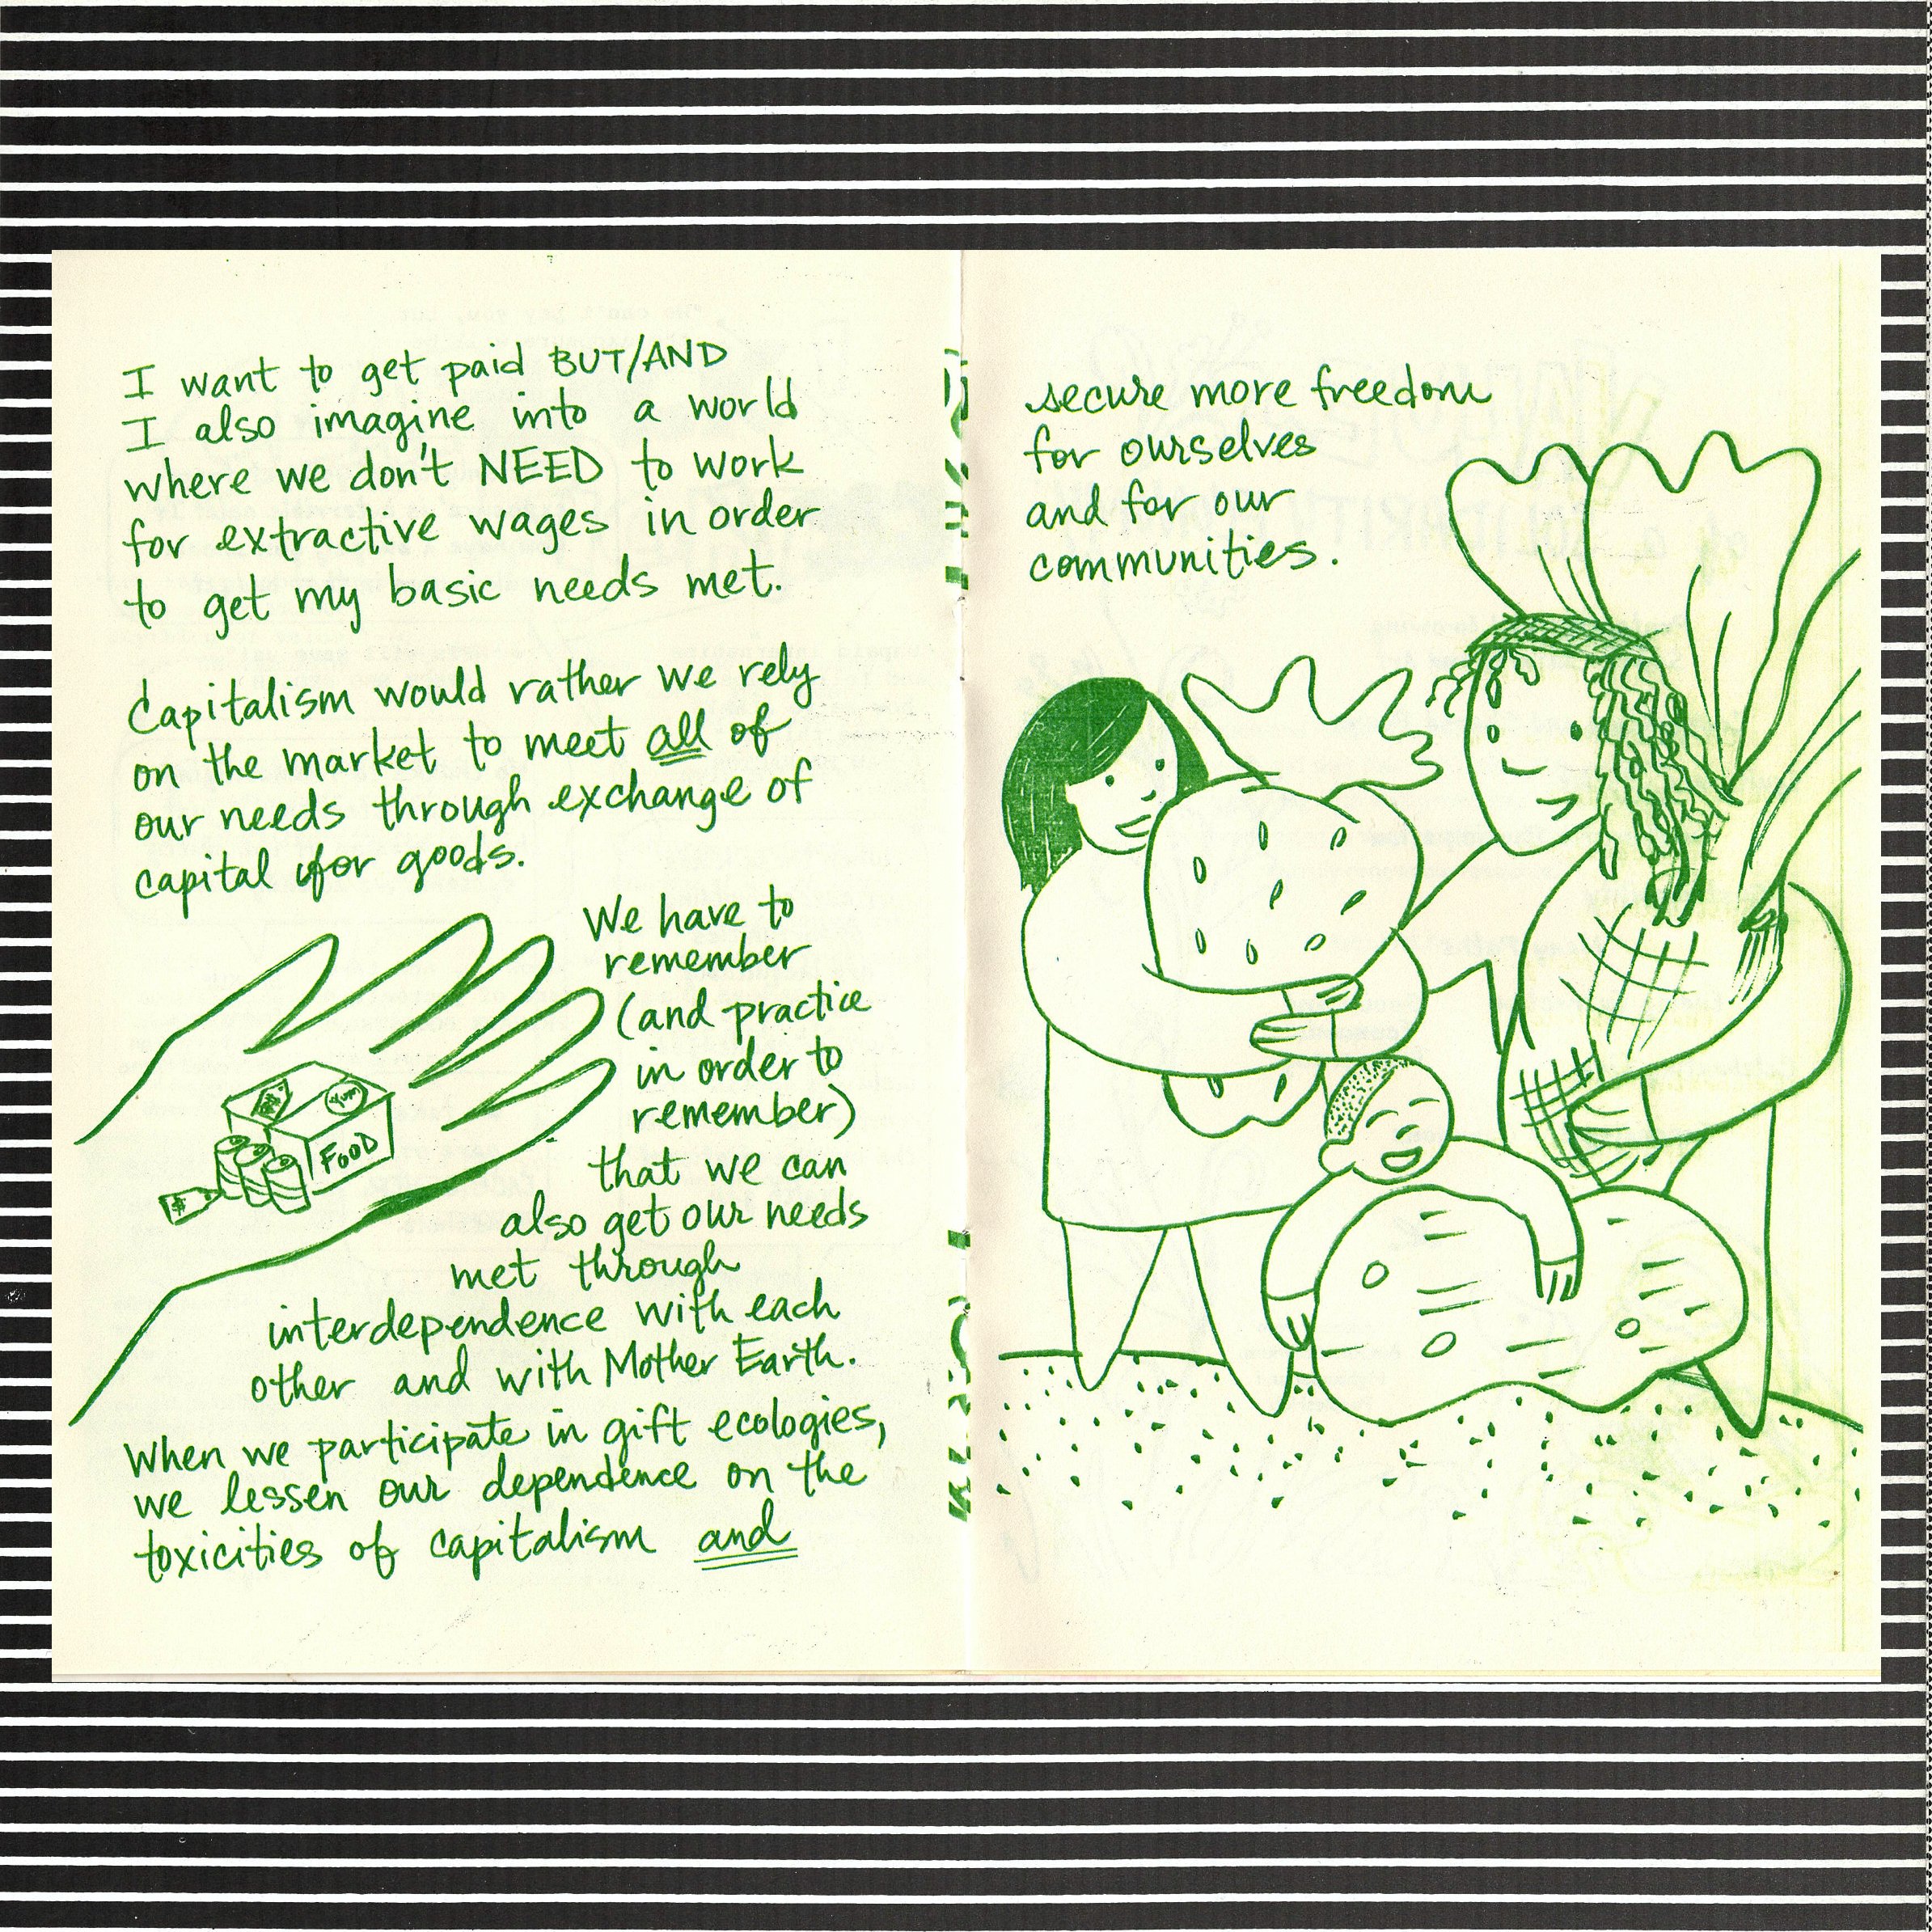 I want to get paid BUT/AND
I also imagine into a world
where we don't NEED to work
for extractive wages in order
to get my basic needs met.
Capitalism would rather we rely
on the market to meet all of
our needs through exchange of
capital for goods.
We have to
remember
(and practice
in order to
remember)
that we can
also get our needs
met through
interdependence with each
other and with Mother Earth.
When we participate in gift ecologies,
we lessen our dependence on the
toxicities of capitalism and
$
Yum
FOOD
$
secure more freedom
for ourselves
and for our
communities.